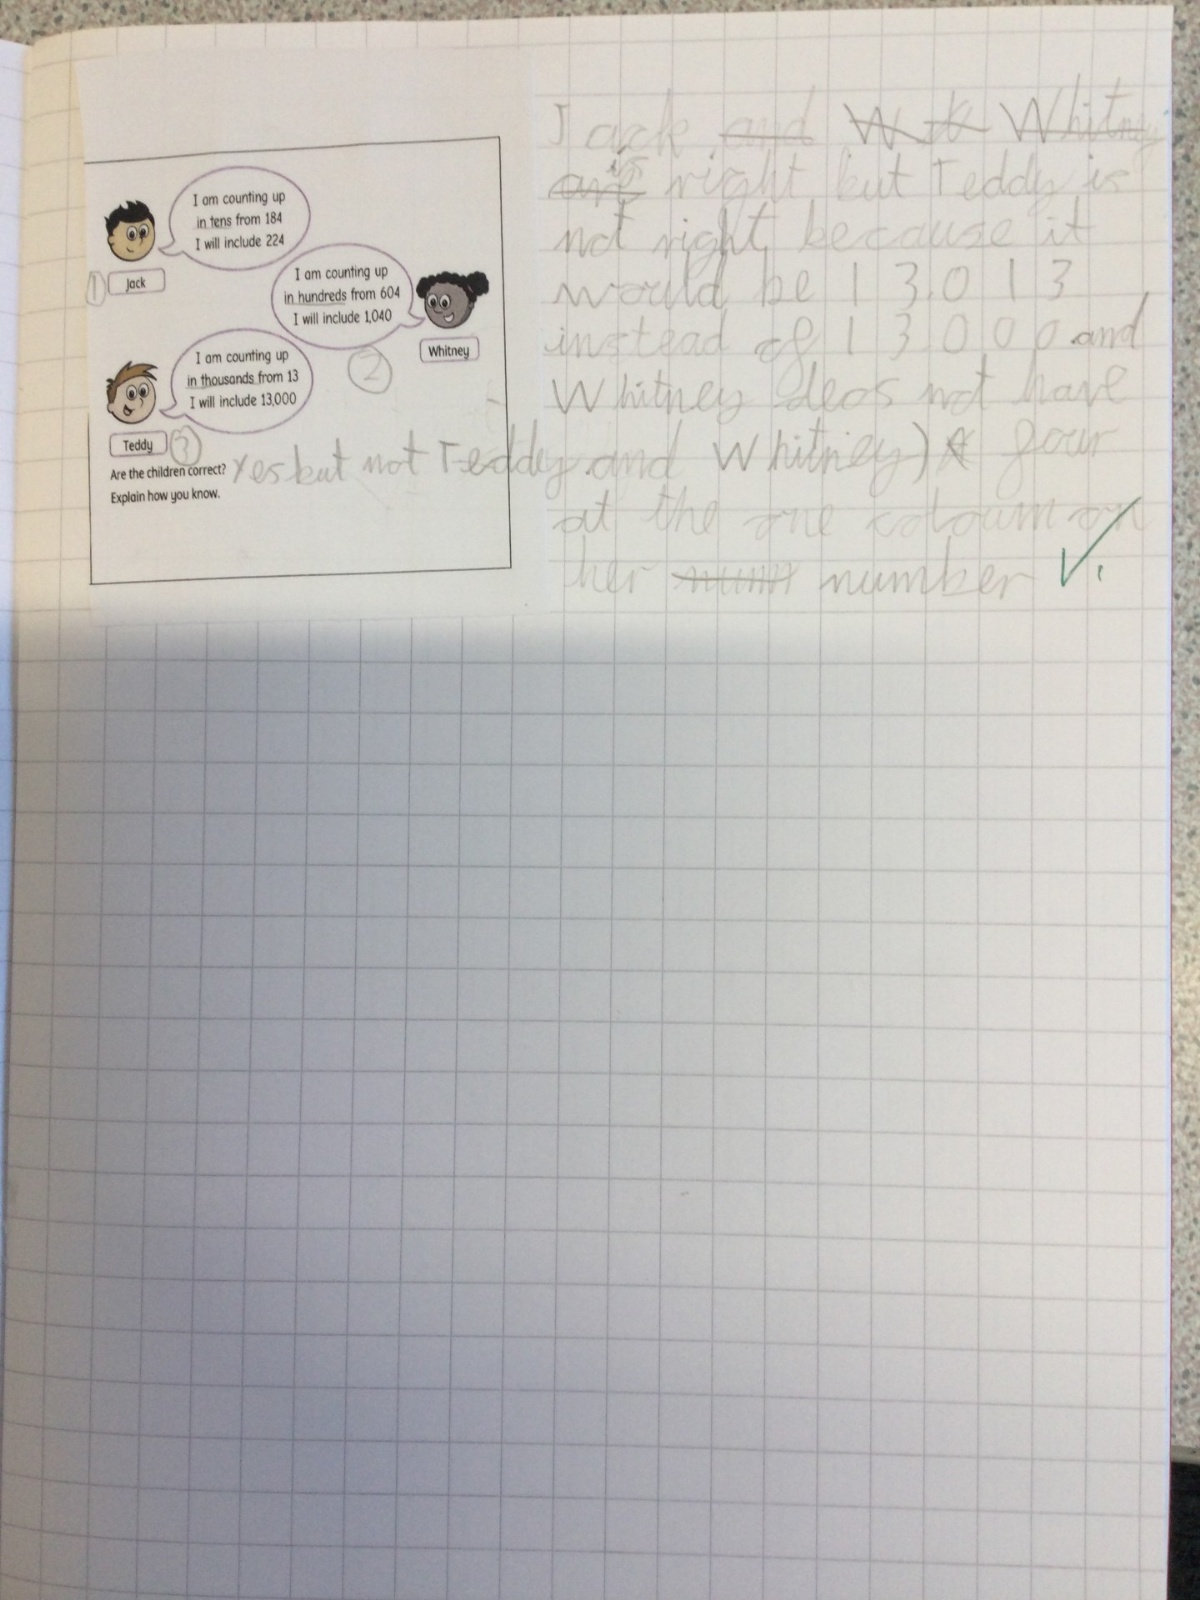 I am counting up
in tens from 184
I will include 224
1
Jack
I am counting up
in hundreds from 604
I will include 1,040
Whitney
2
I am counting up
in thousands from 13
I will include 13,000
Teddy
3
Are the children correct?
Explain how you know.
Yes but not Teddy and Whitney)
Jack and W Whitney
are is right but Teddy is
not right because it
would be 13,013
instead of 13000 and
Whitney deos not have
four
at the one coloum on
her num number